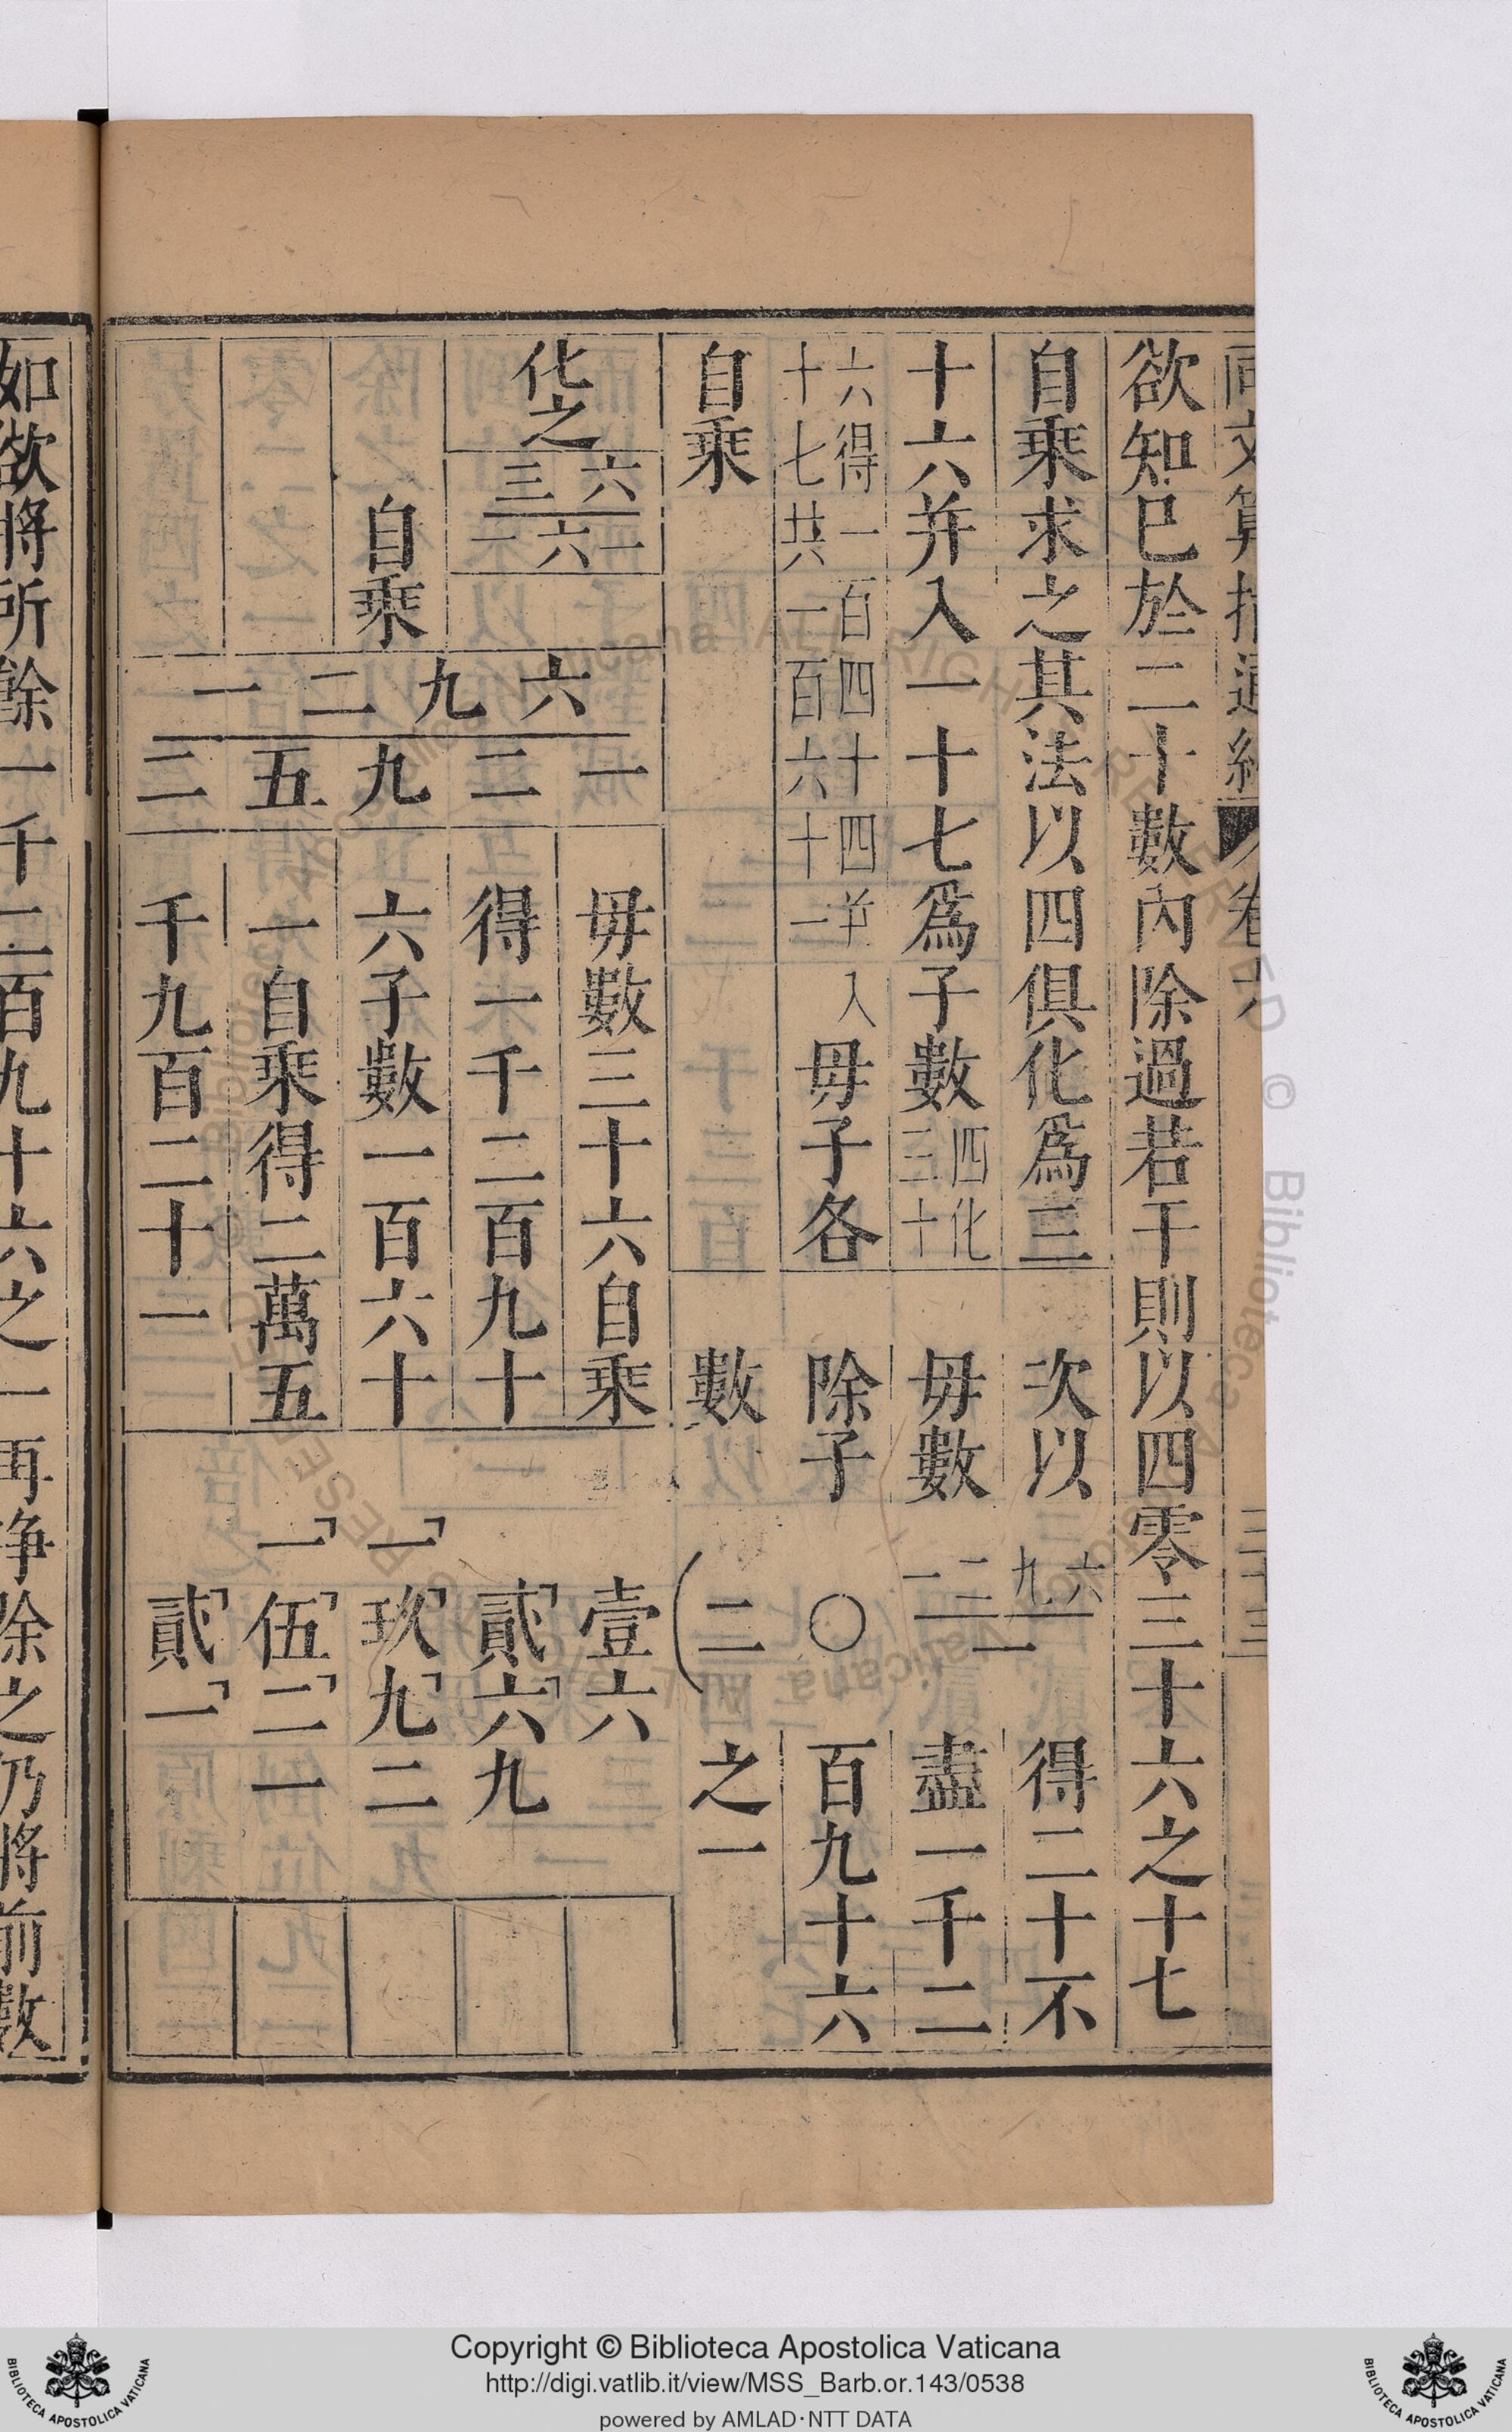 同文算指通編 卷六 三十三
欲知已於二十數內除過若干則以四零三十六之十七
自乘求之其法以四俱化為三
十六并入一十七為子數 四化三十
六得一百四十四并入
十七共一百六十一
毋子各
自乘
次以
毋數
除子
數
六
九
二
一
二
一
〇
二
得二十不
盡一千二
百九十六
之一
化之
六一
三六一
自乘
六九二一
一二九五二
毋數三十六自乘
得一千二百九十
六子數一百六十
一自乘得二萬五
千九百二十一
壹六
貳六九
一玖九二
一伍二一
貳一
如欲將所餘一千二百九十六之一再爭除之乃將前數
Copyright © Biblioteca Apostolica Vaticana
http://digi.vatlib.it/view/MSS_Barb.or.143/0538
powered by AMLAD·NTT DATA
BIBLIOTECA APOSTOLICA VATICANA
BIBLIOTECA APOSTOLICA VATICANA